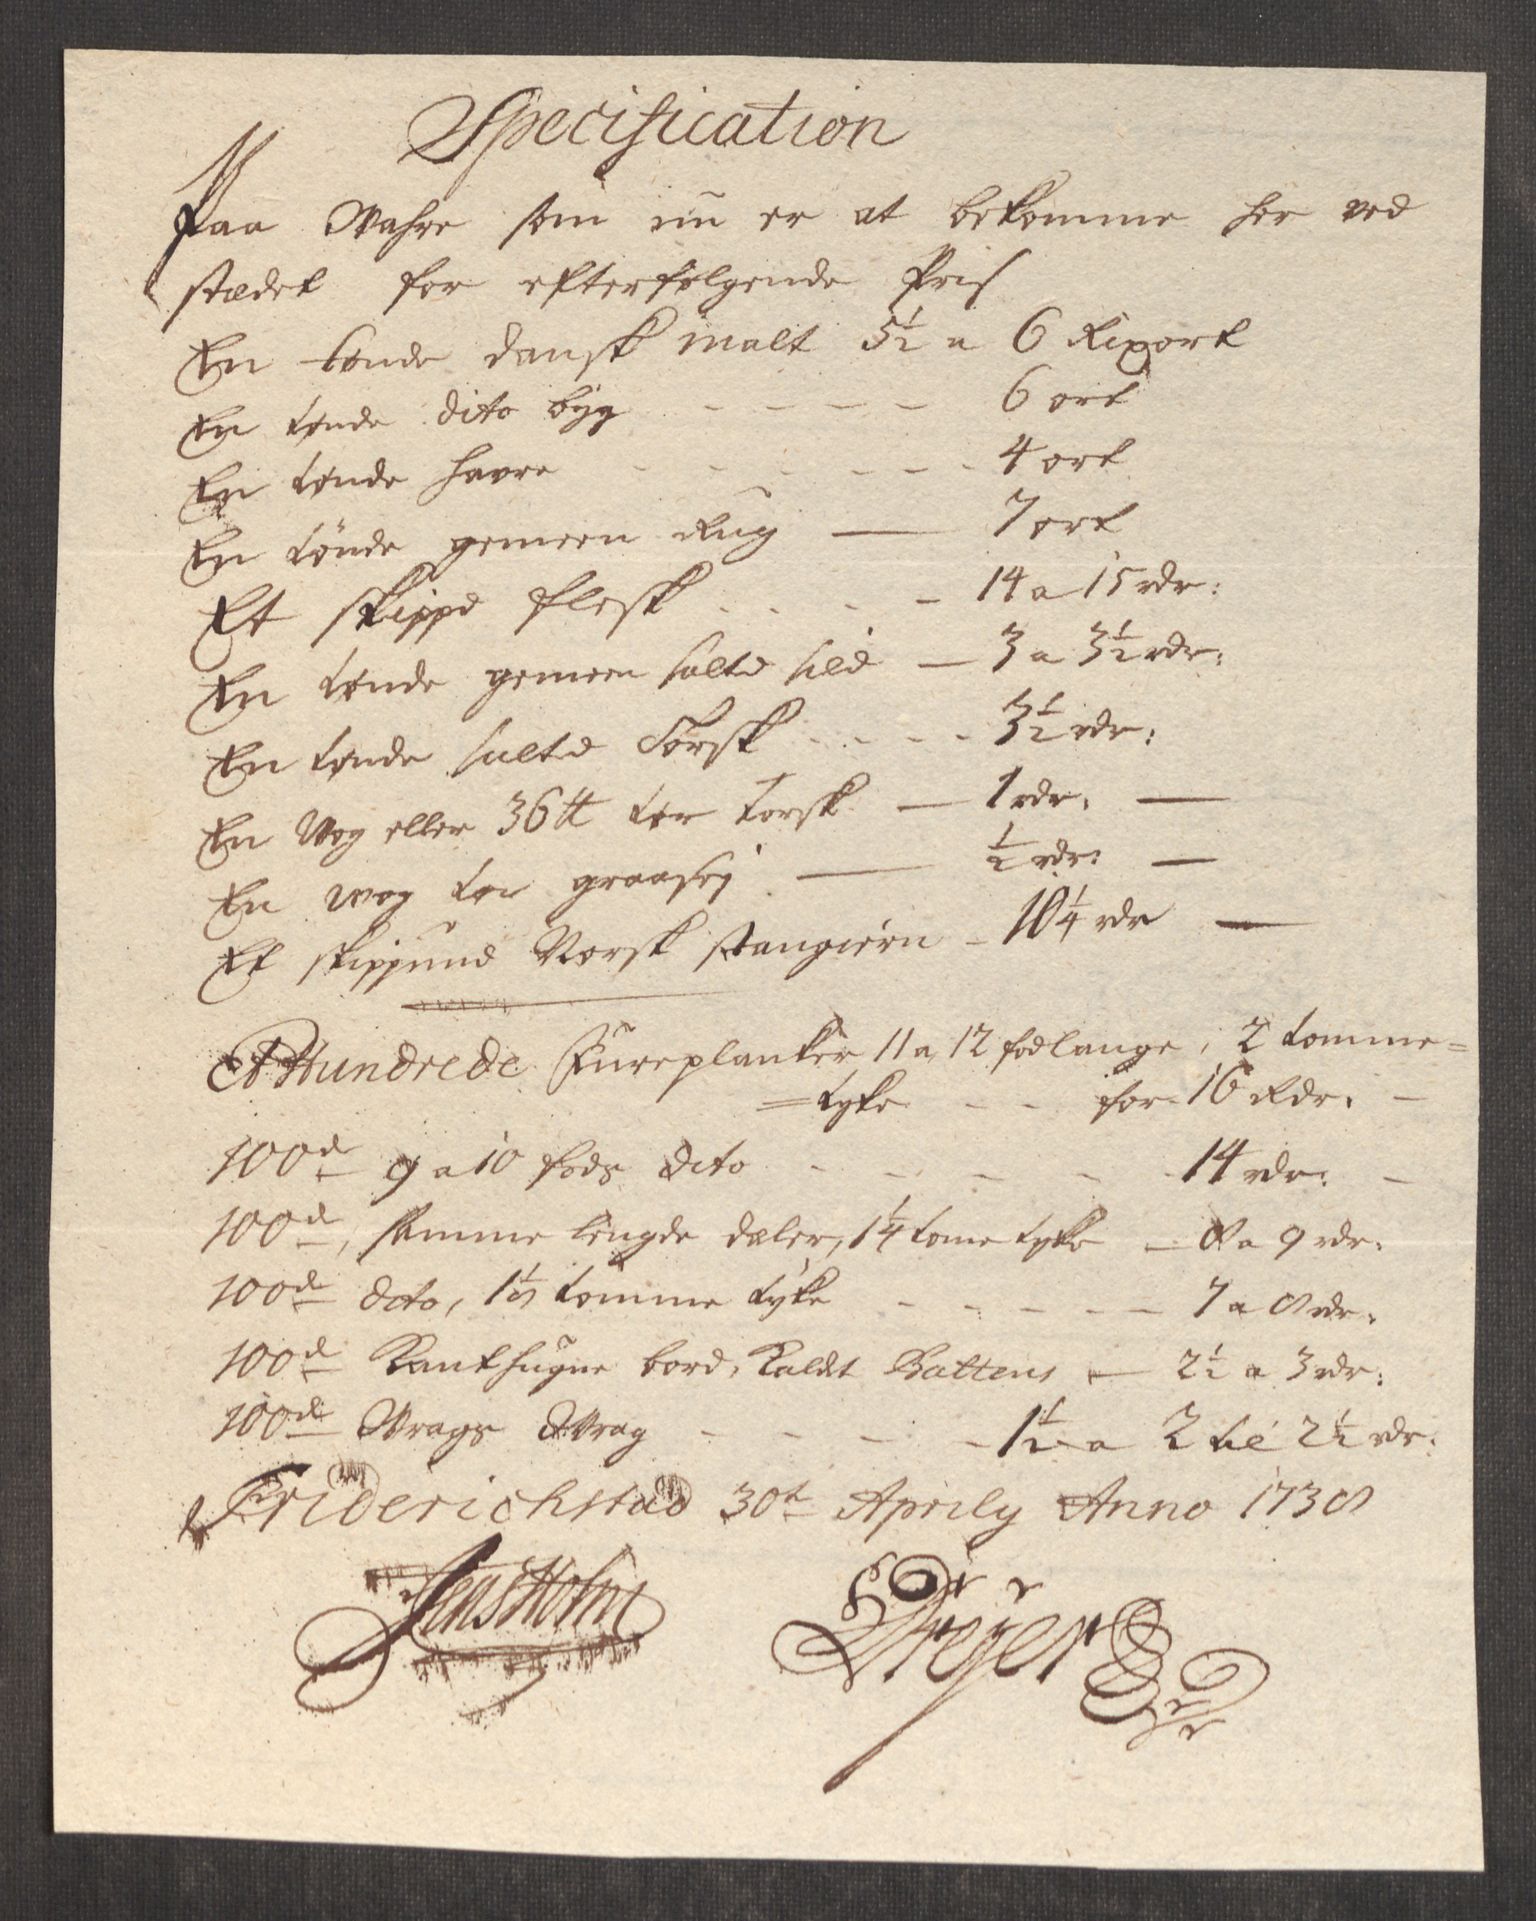 Specification
Paa Wahre som nu er at bekomme her ved
stædet for efterfølgende Pris
En tønde dansk malt 5½ a 6 Rixort
En tønde dito byg - - - - 6 ort
En tønde havre - - - - - - 4 ort
En tönde gemeen Rug — 7 ort
Et skippd flesk - - - - 14 a 15 rdr:
En tønde gemeen salted sild — 3 a 3½ rdr:
En tønde salted Torsk - - - - 3½ rdr:
En Wog eller 36 ℔ tør torsk — 1 rdr. —
En wog tør graasej — ½ rdr: —
Et skippund Norsk stangiern - 10¼ rdr —
Et Hundrede Fureplanker 11 a 12 fod lange, 2 tomme=
=tyke - - for 16 Rdr. -
100d 9 a 10 fods dito - - - - 14 rdr: -
100d, samme lengde daler, 1¼ tome tyke — 8 a 9 rdr.
100d dito, 1 tomme tyke - - - - - 7 a 8 rdr.
100d Kanthugne bord, kaldt Battens — 2½ a 3 rdr:
100de Wrags Wrag - - - - 1½ a 2 til 2½ rdr.
Friderichstad 30t Aprily Anno 1738
Jens Holm Dreyer